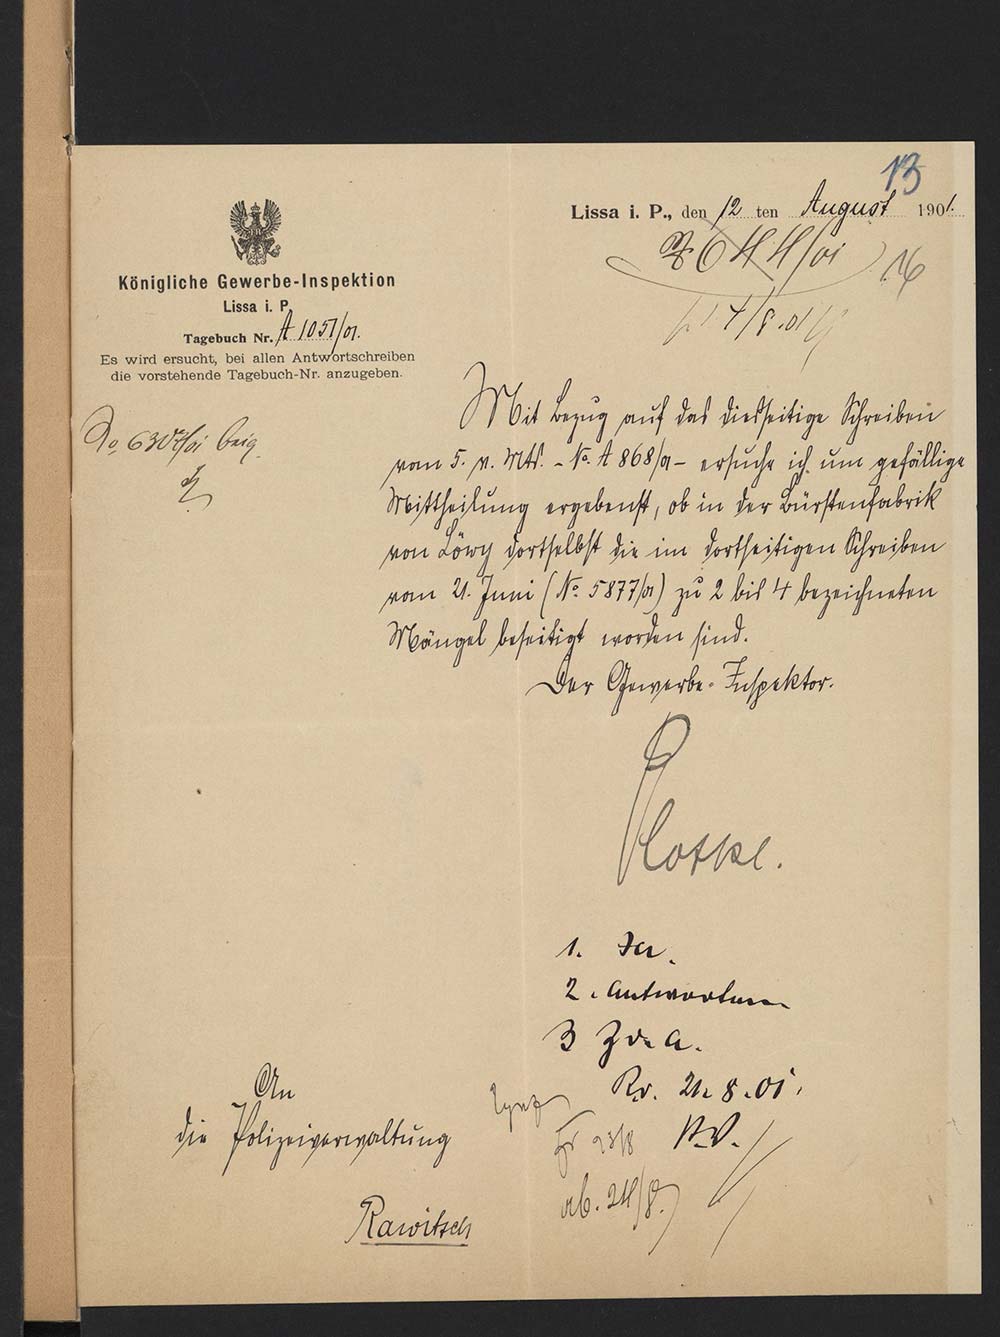 13
Lissa i. P., den 12 ten August 1901.
6441/01
16
Königliche Gewerbe-Inspektion
Lissa i. P.
Tagebuch Nr. A 1051/01.
Es wird ersucht, bei allen Antwortschreiben
die vorstehende Tagebuch-Nr. anzugeben.
No 6307/01 beig.
Mit Bezug auf das diesseitige Schreiben
vom 5. v. Mts. - No. A 868/01 - ersuche ich um gefällige
Mittheilung ergebenst, ob in der Bürstenfabrik
von Löwy dortselbst die im dortseitigen Schreiben
vom 21. Juni (No. 5877/01) zu 2 bis 4 bezeichneten
Mängel beseitigt worden sind.
Der Gewerbe-Inspektor.
Plotke.
1.
2. Antworten
3 Z. d. A.
R. 21. 8. 01.
P.V.
23/8
ab. 24/8.
An
die Polizeiverwaltung
Rawitsch